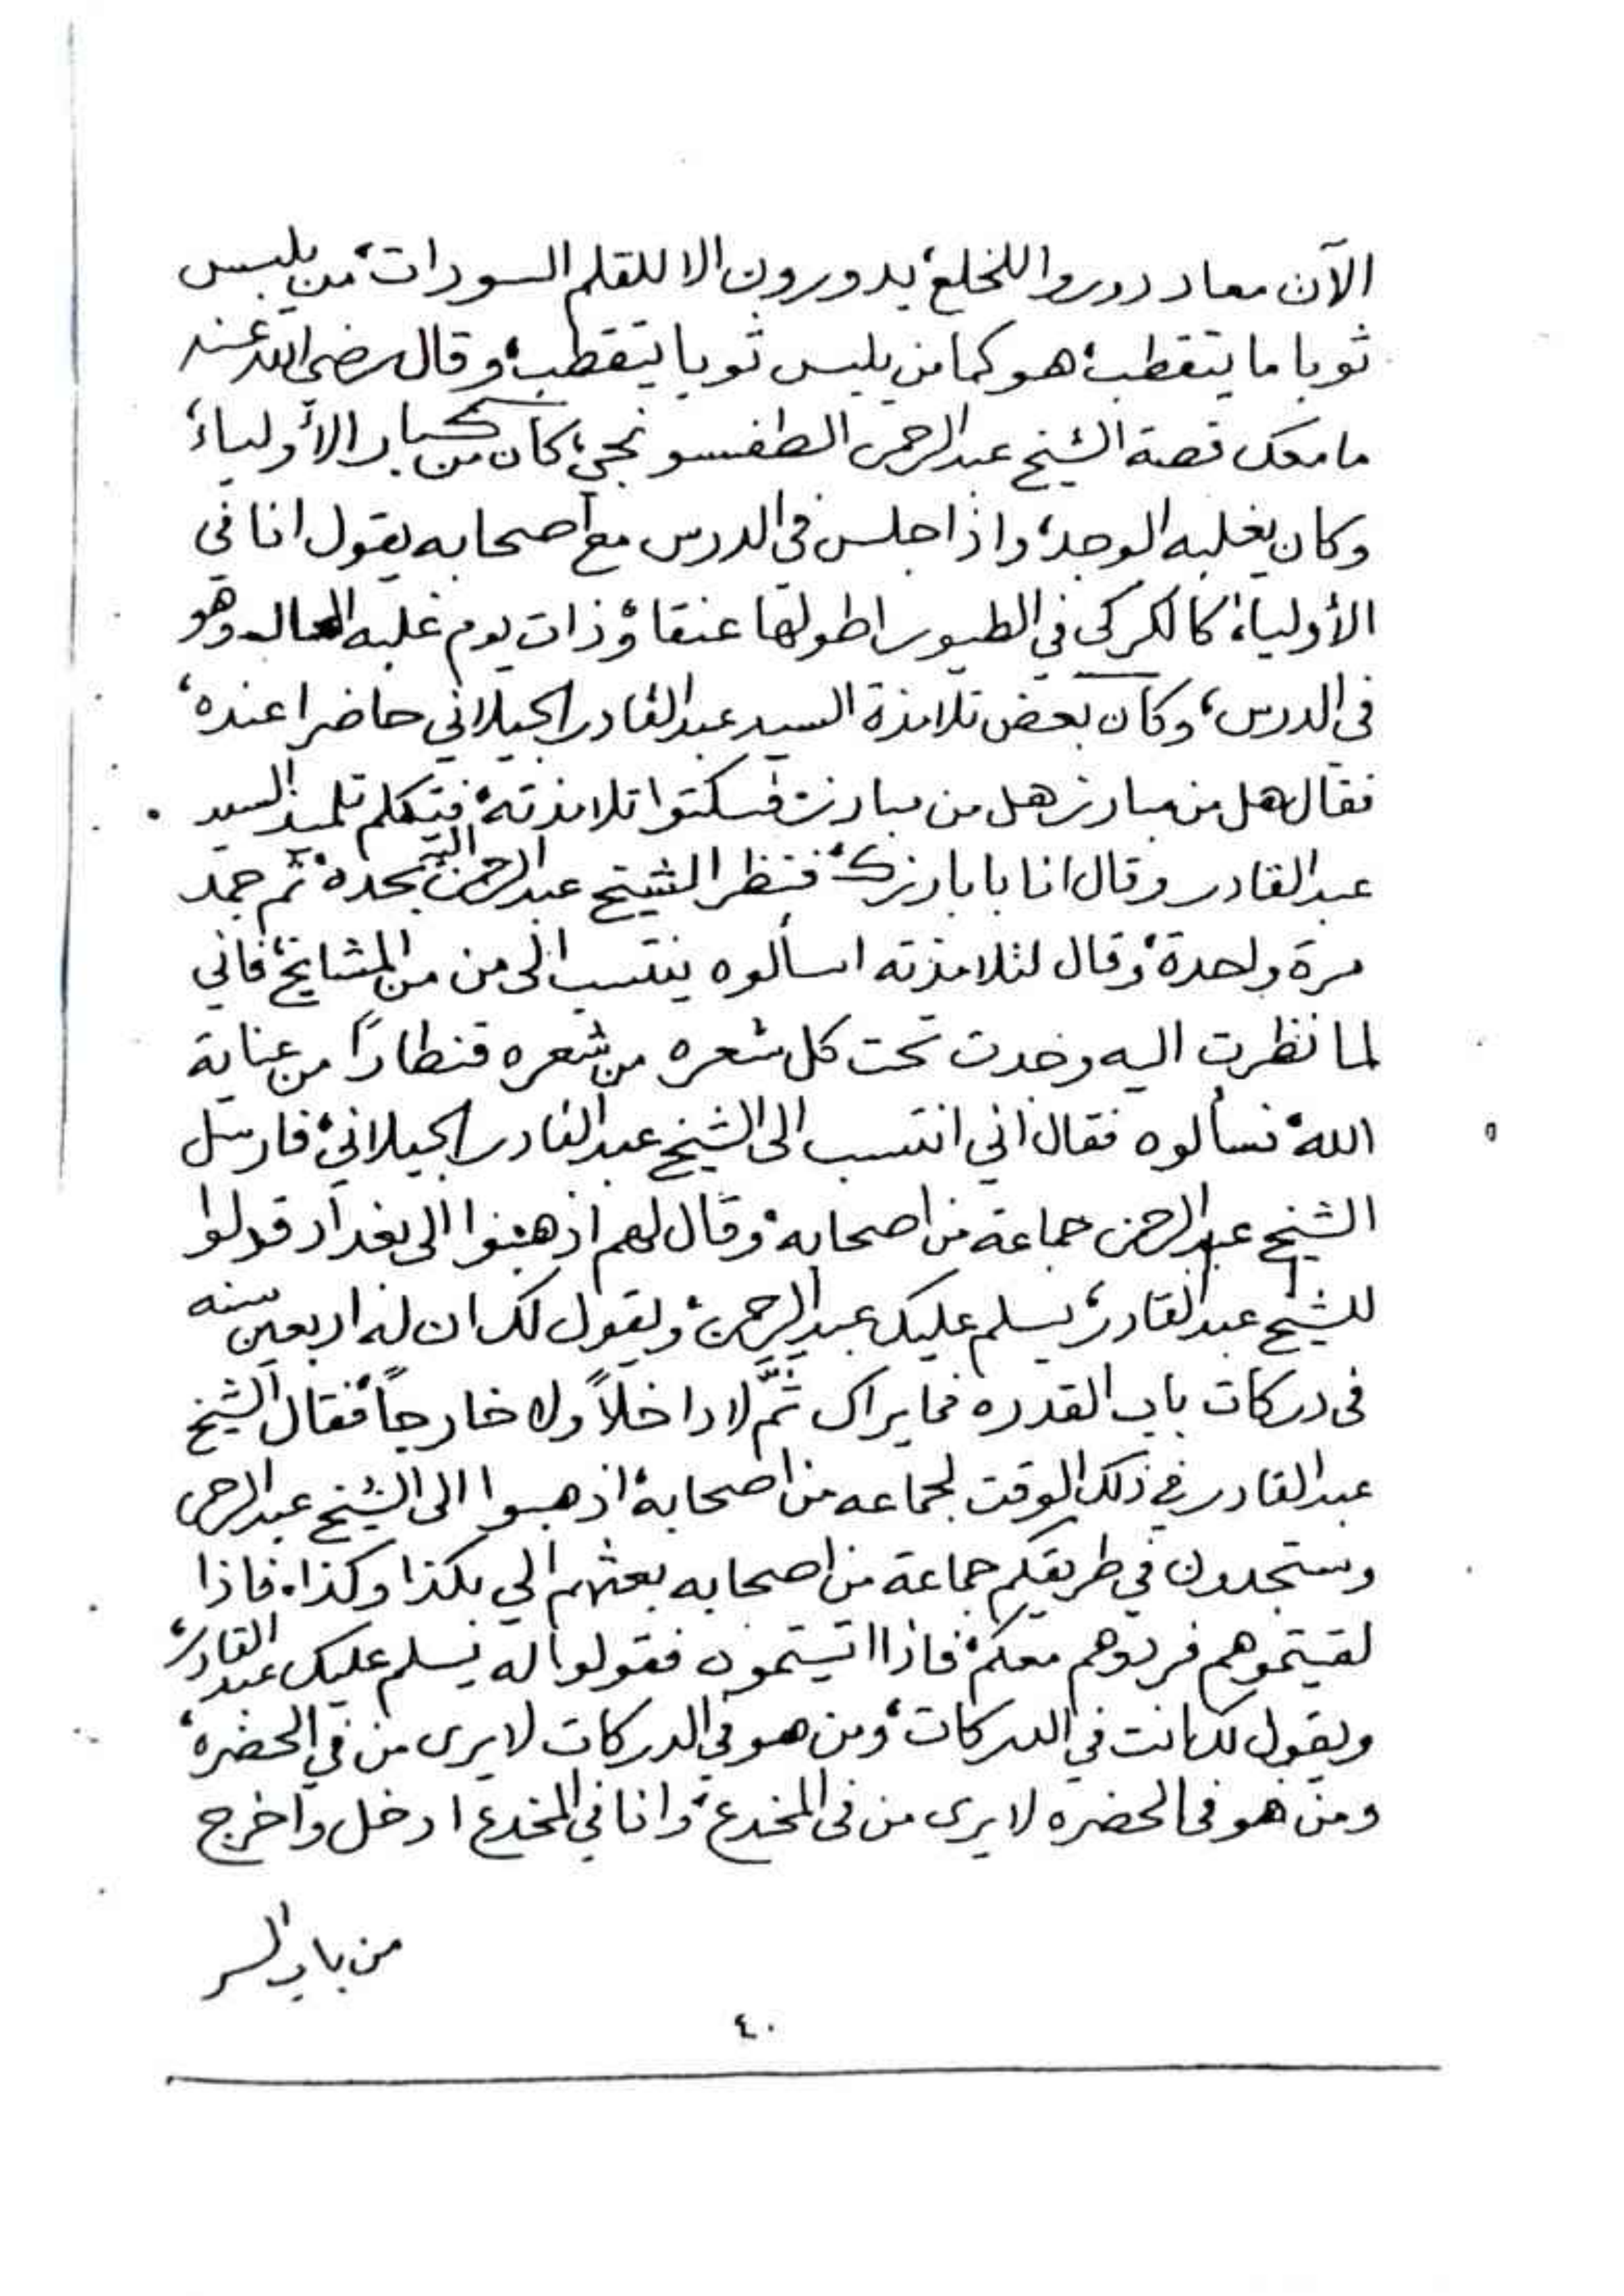 الآن معاد دوروا للخلع، يدورون الا للقلم السودات، من يلبس
ثوبا ما يتقطب، هو كما من يلبس ثوبا يتقطب، وقال رضي الله عنه
ما معك قصة الشيخ عبد الرحمن الطفسونجي، كان من كبار الأولياء،
وكان يغلبه الوجد، واذا جلس في الدرس مع أصحابه يقول انا في
الأولياء كالكركي في الطيور اطولها عنقا، وذات يوم غلبه الحال وهو
في الدرس، وكان بعض تلامذة السيد عبد القادر الجيلاني حاضرا عنده،
فقال هل من مبارز هل من مبارز، فسكتوا تلامذته، فتكلم تلميذ السيد
عبد القادر وقال انا با بارزك، فنظر الشيخ عبد الرحمن اليه بحده، ثم جمد
مرة واحدة، وقال لتلامذته اسألوه ينتسب الى من من المشايخ، فاني
لما نظرت اليه وجدت تحت كل شعره من شعره قنطاراً من عناية
الله، فسألوه فقال اني انتسب الى الشيخ عبد القادر الجيلاني، فارسل
الشيخ عبد الرحمن جماعة من اصحابه، وقال لهم اذهبوا الى بغداد قولوا
للشيخ عبد القادر، يسلم عليك عبد الرحمن، ويقول لك ان له اربعين سنه
في دركات باب القدره فما يراك ثَمَّ لا داخلاً ولا خارجاً، فقال الشيخ
عبد القادر في ذلك الوقت لجماعه من اصحابه، اذهبوا الى الشيخ عبد الرحمن
وستجدون في طريقكم جماعة من اصحابه بعثهم الي بكذا وكذا، فاذا
لقيتموهم فردوهم معكم، فاذا اتيتموه فقولوا له يسلم عليك عبد القادر،
ويقول لك انت في الدركات، ومن هو في الدركات لا يرى من في الحضره،
ومن هو في الحضره لا يرى من في المخدع، وانا في المخدع ادخل واخرج
من باب السر
٤٠